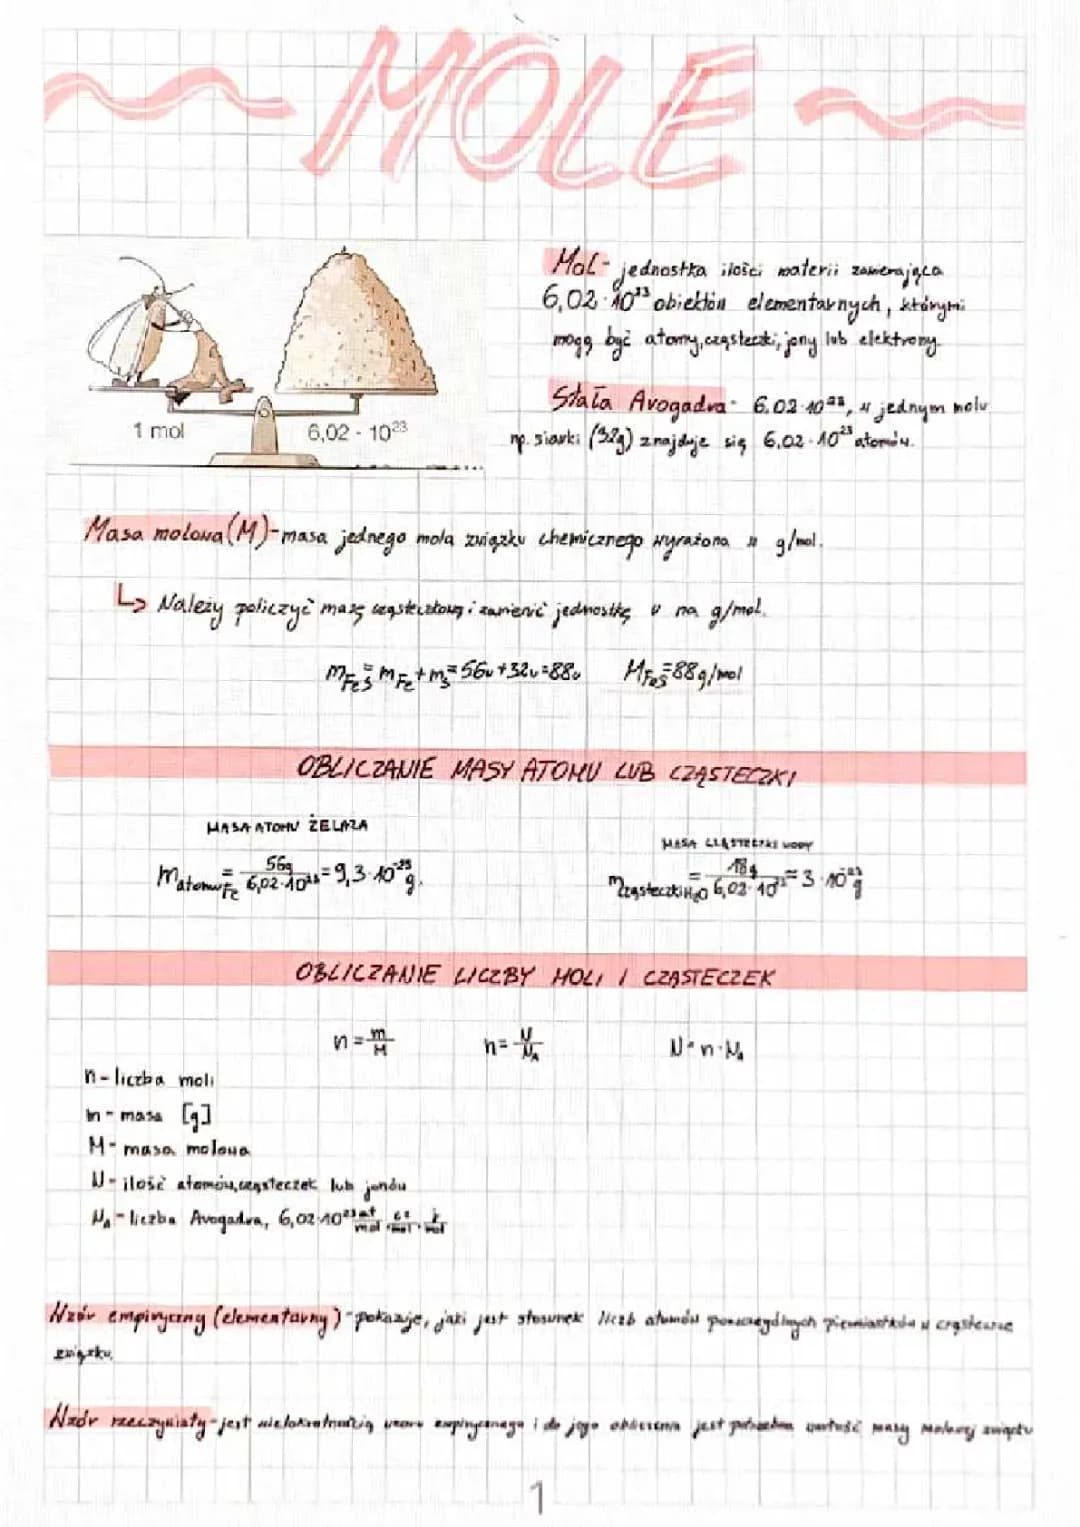 MOLE
Mol- jednostka ilości materii zawierająca
6,02·10²³ obiektów elementarnych, którymi
mogą być atomy, cząsteczki, jony lub elektrony.
Stała Avogadra- 6,02·10²³, w jednym molu
np. siarki (32g) znajduje się 6,02·10²³ atomów.
1 mol
6,02 · 10²³
Masa molowa (M)-masa jednego mola związku chemicznego wyrażona w g/mol.
↳ Należy policzyć masę cząsteczkową i zamienić jednostkę u na g/mol.
mFeS = mFe + mS = 56u + 32u = 88u MFeS = 88g/mol
OBLICZANIE MASY ATOMU LUB CZĄSTECZKI
MASA ATOMU ŻELAZA
MASA CZĄSTECZKI WODY
matomuFe = 56g / 6,02·10²³ = 9,3·10⁻²³ g.
mcząsteczkiH₂O = 18g / 6,02·10²³ = 3·10⁻²³ g
OBLICZANIE LICZBY MOLI I CZĄSTECZEK
n = m/M n = N/NA N = n·NA
n - liczba moli
m - masa [g]
M - masa molowa
N - ilość atomów, cząsteczek lub jonów
NA - liczba Avogadra, 6,02·10²³ at/mol, cz/mol, j/mol
Wzór empiryczny (elementarny) - pokazuje, jaki jest stosunek liczb atomów poszczególnych pierwiastków w cząsteczce
związku.
Wzór rzeczywisty - jest wielokrotnością wzoru empirycznego i do jego obliczenia jest potrzebna wartość masy molowej związku
1